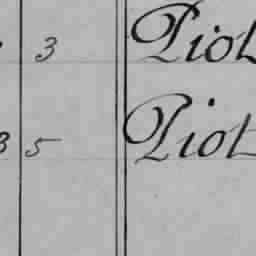 3 Piot
3 5 Piot